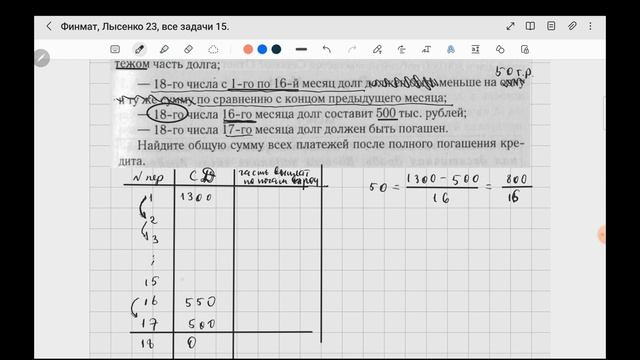 Финмат, Лысенко 23, все задачи 15.
тежом часть долга;
50 т.р.
— 18-го числа с 1-го по 16-й месяц долг меньше на
и ту же сумму по сравнению с концом предыдущего месяца;
— 18-го числа 16-го месяца долг составит 500 тыс. рублей;
— 18-го числа 17-го месяца долг должен быть погашен.
Найдите общую сумму всех платежей после полного погашения кре-
дита.
N пер СД часть выплат по погаш
1 1300
2
3
⋮
15
16 550
17 500
18 0
50 = (1300 - 500) / 16 = 800 / 16